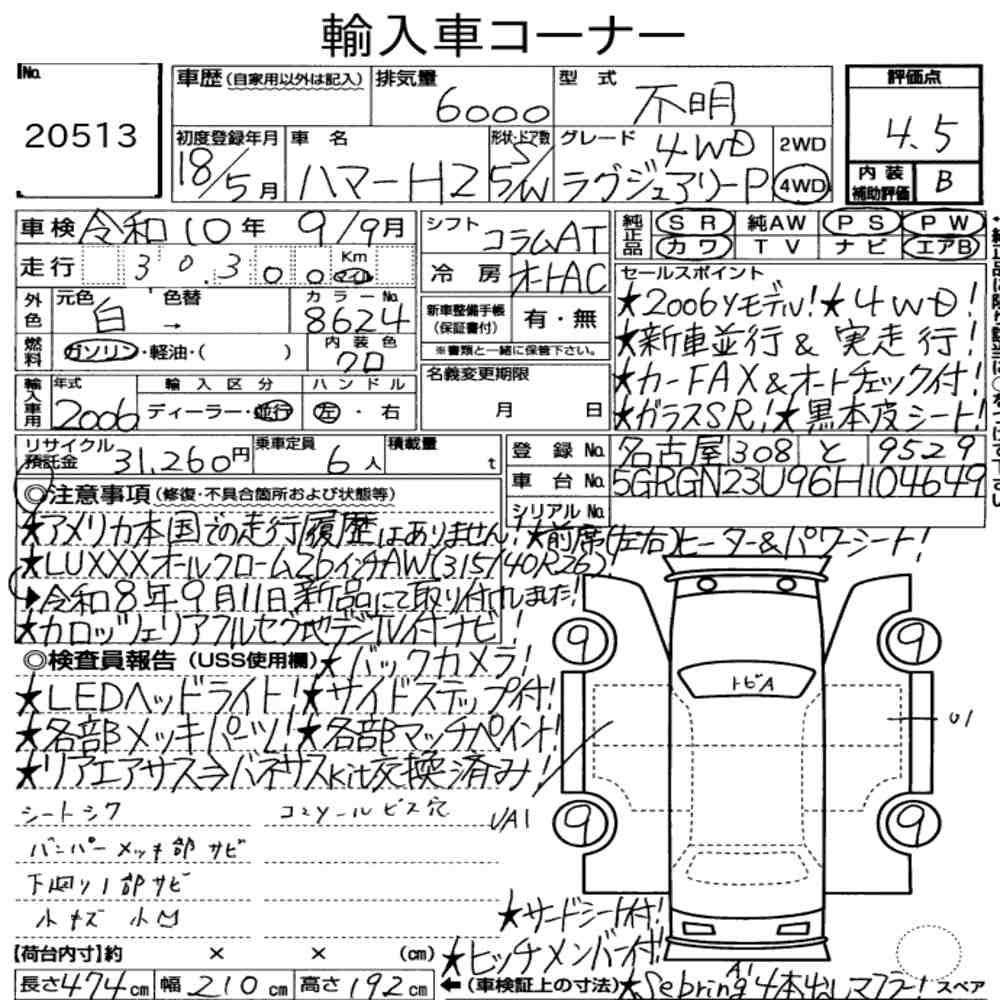 輸入車コーナー
No.
20513
車歴(自家用以外は記入)
排気量
6000
型式
不明
評価点
4.5
初度登録年月
18/5月
車名
ハマーH2
形状・ドア数
5/W
グレード
4WD
ラグジュアリーP
2WD
4WD
内装
補助評価
B
車検 令和10年 9/9月
シフト
コラムAT
純正品
SR 純AW PS PW
カワ TV ナビ エアB
走行 303000 Km
冷房 オートAC
外色
元色 白 → 色替
カラーNo. 8624
新車整備手帳
(保証書付)
有・無
※書類と一緒に保管下さい。
セールスポイント
★2006yモデル!★4WD!
★新車並行&実走行!
★カーFAX&オートチェック付!
★ガラスSR!★黒本皮シート!
燃料
ガソリン・軽油・( )
内装色 クロ
名義変更期限
月 日
輸入車用
年式 2006
輸入区分
ディーラー・並行
ハンドル
左・右
リサイクル
預託金 31,260円
乗車定員 6人
積載量 t
登録No. 名古屋 308 と 9529
車台No. 5GRGN23U96H104649
シリアルNo.
◎注意事項(修復・不具合箇所および状態等)
★アメリカ本国での走行履歴はありません!★前席(左右)ヒーター&パワーシート!
★LUXXXオールクローム26インチAW(315/40R26)
▶令和8年9月11日新品にて取り付けしました!
★カロッツェリアフルセグ地デジTV付ナビ!
◎検査員報告(USS使用欄)★バックカメラ!
★LEDヘッドライト!★サイドステップ付!
★各部メッキパーツ!★各部マッチペイント!
★リアエアサス⇒バネサスkit交換済み!
トビA
U1
9
9
9
9
シートシワ
コンソールビス穴
UA1
バンパーメッキ部サビ
下廻り1部サビ
小キズ 小凹
★サードシート付!
★ヒッチメンバー付!
A1
【荷台内寸】約 × × (cm)
長さ474cm 幅210cm 高さ192cm
←(車検証上の寸法)★Sebring 4本出しマフラー!
スペア